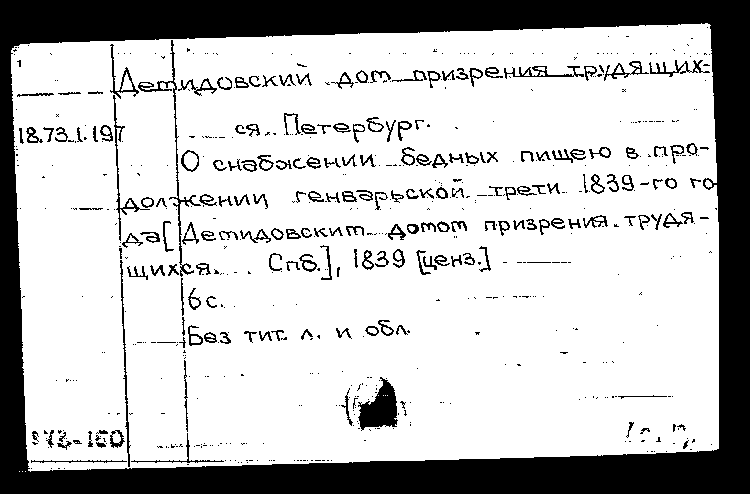 Демидовский дом призрения трудящих-
18.73.1.197 ся. Петербург.
О снабжении бедных пищею в про-
должении генварьской трети 1839-го го
да [Демидовским домом призрения трудя-
щихся. Спб.], 1839 [ценз.]
6 с.
Без тит. л. и обл.
973-160